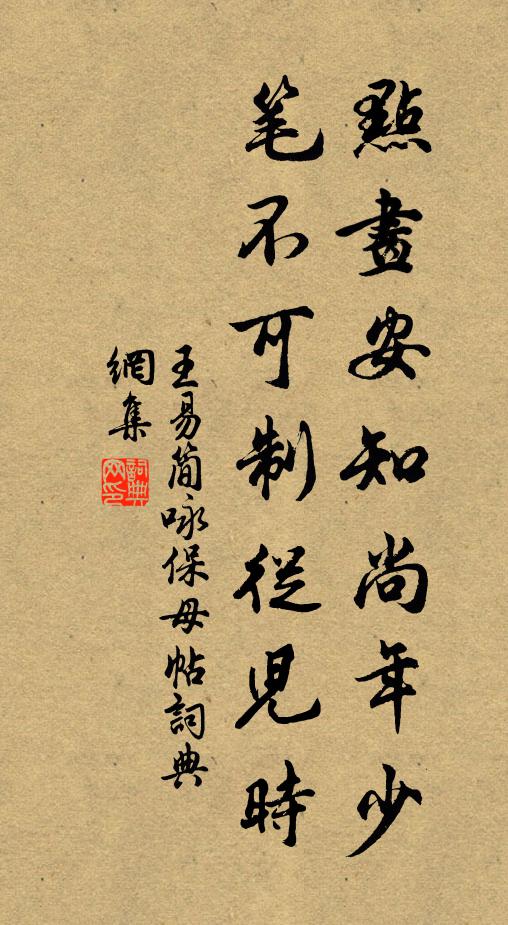 點畫安知尚年少
笔不可制從児時
王易简咏保母帖詞典
網集
詞典
网印